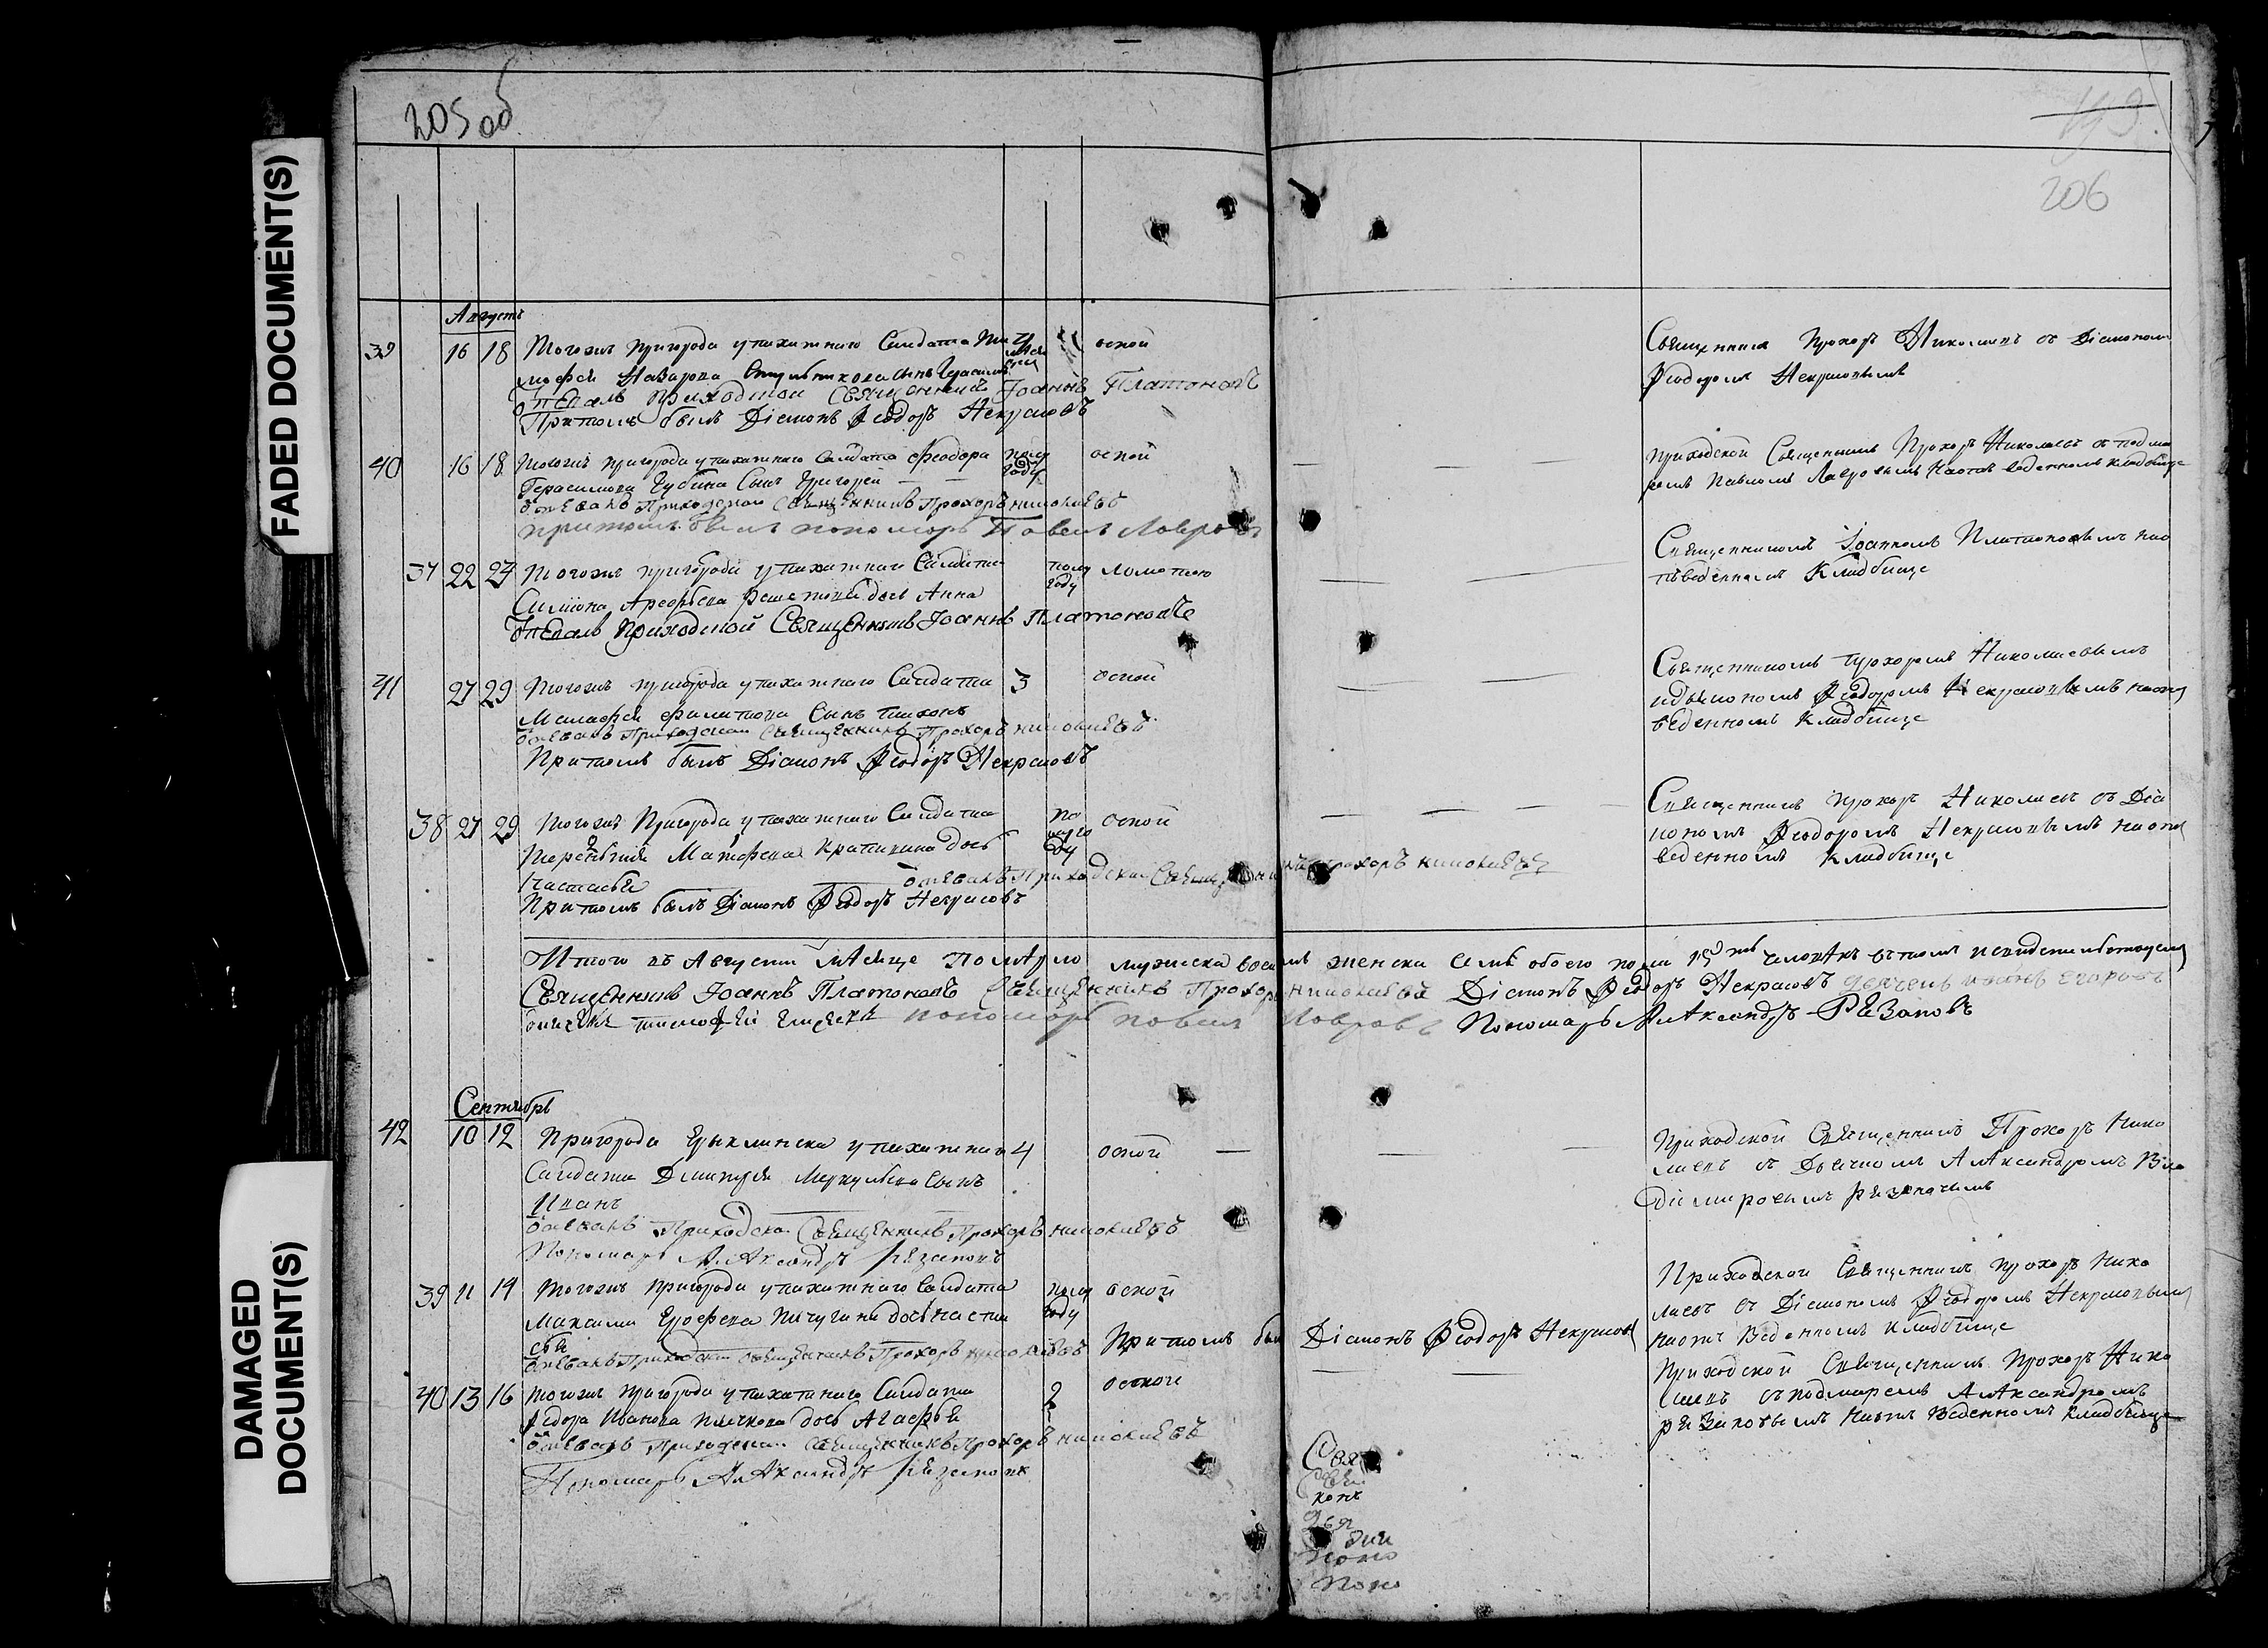 FADED DOCUMENT(S)
DAMAGED DOCUMENT(S)
205 об
206
Августъ
39 16 18 Тогожъ пригорода упахатнаго Салдата Ти осной
мофея Назарова сынъ Герасимъ
Отпевалъ приходской Священникъ Іоаннъ Платоновъ
Притомъ былъ Діаконъ Ѳеодоръ Некрасовъ
Священникъ Прохоръ Николаевъ съ Діакономъ
Ѳеодоромъ Некрасовымъ
40 16 18 Тогожъ пригорода упахатнаго Салдата Феодора полу году осной
Герасимова Губина Сынъ Григорей
отпевалъ Приходской Священникъ Прохоръ николаевъ
притомъ былъ пономарь Павелъ Лавровъ
приходской Священникъ Прохоръ Николаевъ съ пономаремъ Павломъ Лавровымъ наотведенномъ кладбище
37 22 24 Тогожъ пригорода упахатнаго Салдата полу году ломотою
Симиона Арефьева дочь Анна
Отпевалъ Приходской Священникъ Іоаннъ Платоновъ
Священникомъ Іоанномъ Платоновымъ нао
тведенномъ Кладбище
41 27 29 Тогожъ пригорода упахатнаго Салдата 3 осной
Малафея Филипова Сынъ Тихонъ
отпевалъ Приходской Священникъ Прохоръ николаевъ
Притомъ былъ Діаконъ Ѳеодоръ Некрасовъ
Священникомъ Прохоромъ Николаевымъ
идьякономъ Ѳеодоромъ Некрасовымъ наот
веденномъ Кладбище
38 27 29 Тогожъ Пригорода упахатнаго Салдата полу го ду осной
Терентия Матфеева дочь
Настасья отпевалъ Приходской Священникъ Прохоръ николаевъ
Притомъ былъ Діаконъ Ѳеодоръ Некрасовъ
Священникъ Прохоръ Николаевъ съ Діа
кономъ Ѳеодоромъ Некрасовымъ наот
веденномъ Кладбище
Итого въ Августе месяце Померло мужеска восемь женска семь обоего пола человекъ
Священникъ Іоаннъ Платоновъ Священникъ Прохоръ николаевъ Діаконъ Ѳеодоръ Некрасовъ
пономарь Павелъ Лавровъ Пономарь Александръ Резановъ
Сентябрь
42 10 12 Пригорода Ерыклинска упахатнаго 4 осной
Салдата Дмитрея Меркульева Сынъ
Иванъ
отпевалъ Приходской Священникъ Прохоръ николаевъ
Пономарь Александръ Резановъ
Приходской Священникъ Прохоръ Нико
лаевъ съ Дьячкомъ Александромъ Вла
димировымъ Резановымъ
39 11 14 Тогожъ Пригорода упахатнаго Салдата полу году осной
Максима Ерофеева Пичугина дочь настасья
отпевалъ Приходской Священникъ Прохоръ николаевъ Притомъ былъ Діаконъ Ѳеодоръ Некрасовъ
Приходской Священникъ Прохоръ Нико
лаевъ съ Діакономъ Ѳеодоромъ Некрасовымъ
наотведенномъ Кладбище
40 13 16 Тогожъ пригорода упахатнаго Салдата 2 осной
Ѳедора Иванова дочь Агафья
отпевалъ Приходской Священникъ Прохоръ николаевъ
Пономарь Александръ Резановъ
Приходской Священникъ Прохоръ Нико
лаевъ Александромъ
Резановымъ наотведенномъ Кладбище
Свя
конъ
Поно
Поно